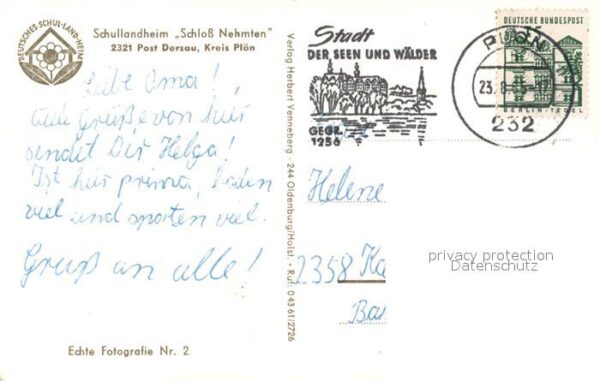 DEUTSCHES SCHUL-LAND-HEIM
Schullandheim „Schloß Nehmten"
2321 Post Dersau, Kreis Plön
Liebe Oma!
Viele Grüße von hier
sendet Dir Helga!
Ist hier prima, baden
viel und sporten viel.
Gruß an alle!
Echte Fotografie Nr. 2
Verlag Herbert Venneberg · 244 Oldenburg/Holst. · Ruf: 04361/2726
Stadt
DER SEEN UND WÄLDER
GEGR.
1236
PLÖN
23.8.65
232
DEUTSCHE BUNDESPOST
15
BERLIN-TEGEL
Helene
2358 Ka
Ba
privacy protection
Datenschutz